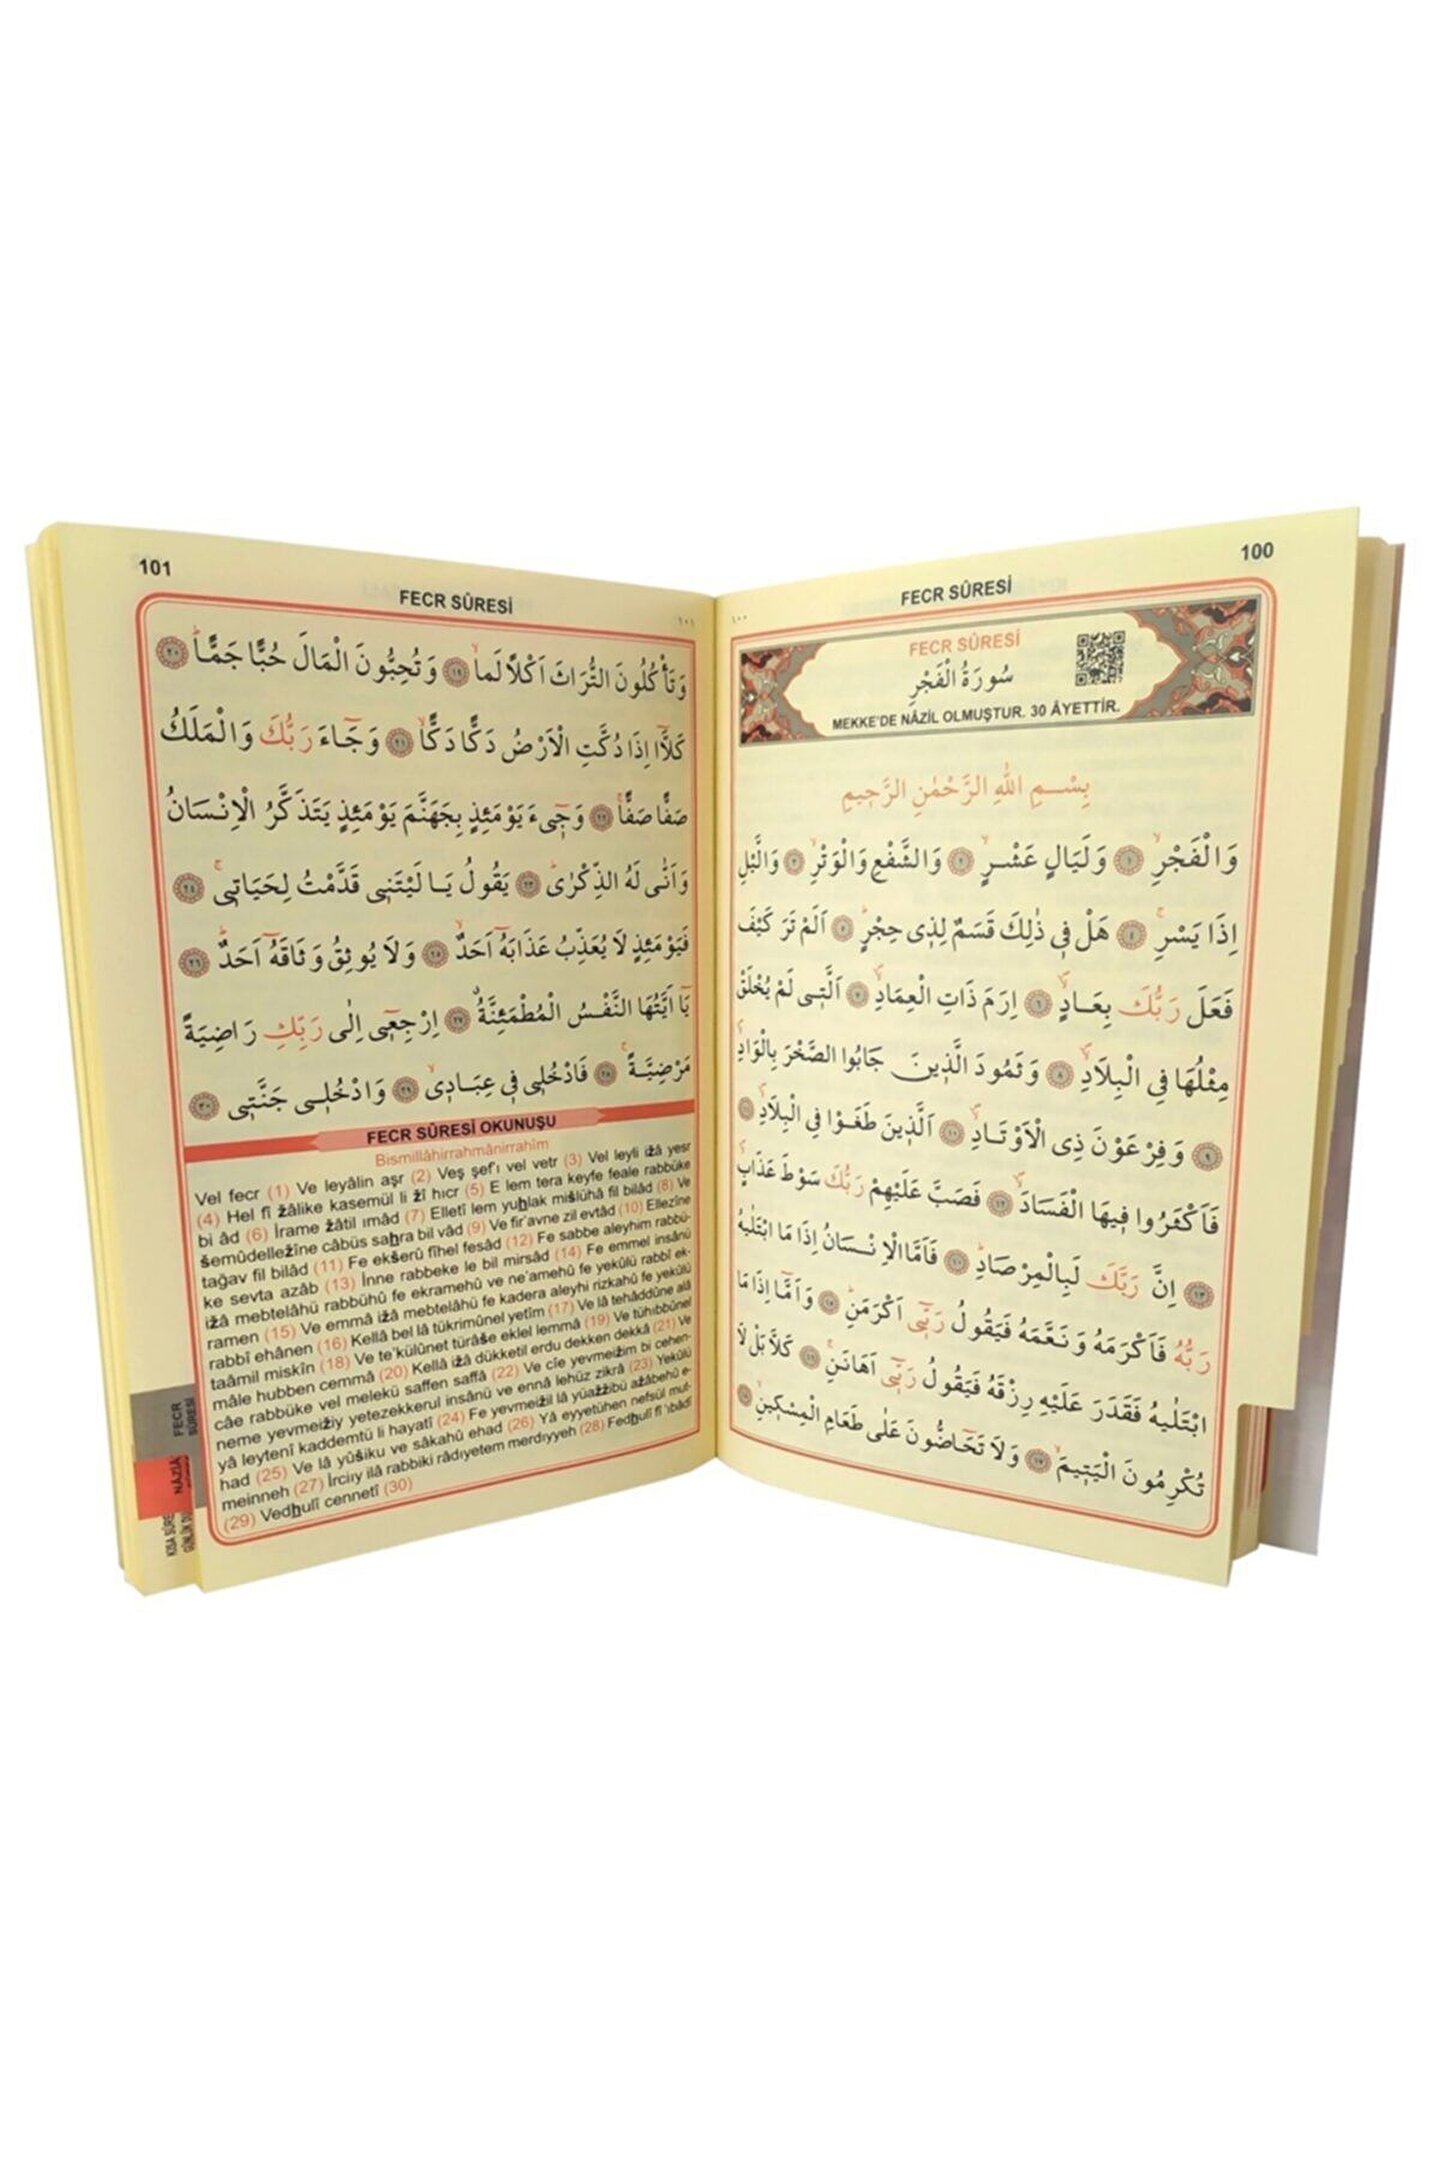 100
FECR SÛRESİ
١٠٠
FECR SÛRESİ
سُورَةُ الْفَجْرِ
MEKKE'DE NÂZİL OLMUŞTUR. 30 ÂYETTİR.
بِسْمِ اللّٰهِ الرَّحْمٰنِ الرَّحٖيمِ
وَالْفَجْرِۙ ﴿١﴾ وَلَيَالٍ عَشْرٍۙ ﴿٢﴾ وَالشَّفْعِ وَالْوَتْرِۙ ﴿٣﴾ وَالَّيْلِ
اِذَا يَسْرِۚ ﴿٤﴾ هَلْ فٖى ذٰلِكَ قَسَمٌ لِذٖى حِجْرٍؕ ﴿٥﴾ اَلَمْ تَرَ كَيْفَ
فَعَلَ رَبُّكَ بِعَادٍۙ ﴿٦﴾ اِرَمَ ذَاتِ الْعِمَادِۙ ﴿٧﴾ اَلَّتٖى لَمْ يُخْلَقْ
مِثْلُهَا فِى الْبِلَادِۙ ﴿٨﴾ وَثَمُودَ الَّذٖينَ جَابُوا الصَّخْرَ بِالْوَادِۙ
﴿٩﴾ وَفِرْعَوْنَ ذِى الْاَوْتَادِۙ ﴿١٠﴾ اَلَّذٖينَ طَغَوْا فِى الْبِلَادِۙ ﴿١١﴾
فَاَكْثَرُوا فٖيهَا الْفَسَادَۙ ﴿١٢﴾ فَصَبَّ عَلَيْهِمْ رَبُّكَ سَوْطَ عَذَابٍۚ
﴿١٣﴾ اِنَّ رَبَّكَ لَبِالْمِرْصَادِؕ ﴿١٤﴾ فَاَمَّا الْاِنْسَانُ اِذَا مَا ابْتَلٰيهُ
رَبُّهُ فَاَكْرَمَهُ وَنَعَّمَهُ فَيَقُولُ رَبّٖٓى اَكْرَمَنِؕ ﴿١٥﴾ وَاَمَّٓا اِذَا مَا
ابْتَلٰيهُ فَقَدَرَ عَلَيْهِ رِزْقَهُ فَيَقُولُ رَبّٖٓى اَهَانَنِۚ ﴿١٦﴾ كَلَّا بَلْ لَا
تُكْرِمُونَ الْيَتٖيمَۙ ﴿١٧﴾ وَلَا تَحَٓاضُّونَ عَلٰى طَعَامِ الْمِسْكٖينِۙ ﴿١٨﴾
101
FECR SÛRESİ
١٠١
وَتَأْكُلُونَ التُّرَاثَ اَكْلًا لَمًّاۙ ﴿١٩﴾ وَتُحِبُّونَ الْمَالَ حُبًّا جَمًّاؕ ﴿٢٠﴾
كَلَّٓا اِذَا دُكَّتِ الْاَرْضُ دَكًّا دَكًّاۙ ﴿٢١﴾ وَجَٓاءَ رَبُّكَ وَالْمَلَكُ
صَفًّا صَفًّاۚ ﴿٢٢﴾ وَجٖٓىءَ يَوْمَئِذٍ بِجَهَنَّمَ يَوْمَئِذٍ يَتَذَكَّرُ الْاِنْسَانُ
وَاَنّٰى لَهُ الذِّكْرٰىؕ ﴿٢٣﴾ يَقُولُ يَا لَيْتَنٖى قَدَّمْتُ لِحَيَاتٖىۚ ﴿٢٤﴾
فَيَوْمَئِذٍ لَا يُعَذِّبُ عَذَابَهُٓ اَحَدٌۙ ﴿٢٥﴾ وَلَا يُوثِقُ وَثَاقَهُٓ اَحَدٌؕ ﴿٢٦﴾
يَٓا اَيَّتُهَا النَّفْسُ الْمُطْمَئِنَّةُۗ ﴿٢٧﴾ اِرْجِعٖٓى اِلٰى رَبِّكِ رَاضِيَةً
مَرْضِيَّةًۚ ﴿٢٨﴾ فَادْخُلٖى فٖى عِبَادٖىۙ ﴿٢٩﴾ وَادْخُلٖى جَنَّتٖى ﴿٣٠﴾
FECR SÛRESİ OKUNUŞU
Bismillâhirrahmânirrahîm
Vel fecr (1) Ve leyâlin aşr (2) Veş şef'ı vel vetr (3) Vel leyli ižâ yesr
(4) Hel fî žâlike kasemül li žî hıcr (5) E lem tera keyfe feale rabbüke
bi âd (6) İrame žâtil ımâd (7) Elletî lem yuhlak mišlühâ fil bilâd (8) Ve
šemûdelležîne câbüs sahra bil vâd (9) Ve fir'avne zil evtâd (10) Ellezîne
tağav fil bilâd (11) Fe ekšerû fîhel fesâd (12) Fe sabbe aleyhim rabbü-
ke sevta azâb (13) İnne rabbeke le bil mirsâd (14) Fe emmel insânü
ižâ mebtelâhü rabbühû fe ekramehû ve ne'amehû fe yekûlü rabbî ek-
ramen (15) Ve emmâ ižâ mebtelâhü fe kadera aleyhi rizkahû fe yekûlü
rabbî ehânen (16) Kellâ bel lâ tükrimûnel yetîm (17) Ve lâ tehâddûne alâ
taâmil miskîn (18) Ve te'külûnet türâše eklel lemmâ (19) Ve tühıbbûnel
mâle hubben cemmâ (20) Kellâ ižâ dükketil erdu dekken dekkâ (21) Ve
câe rabbüke vel melekü saffen saffâ (22) Ve cîe yevmeižim bi cehen-
neme yevmeižiy yetezekkerul insânü ve ennâ lehüz zikrâ (23) Yekûlü
yâ leytenî kaddemtü li hayatî (24) Fe yevmeižil lâ yüažžibü ažâbehû e-
had (25) Ve lâ yûšiku ve sâkahû ehad (26) Yâ eyyetühen nefsül mut-
meinneh (27) İrciıy ilâ rabbiki râdıyetem merdıyyeh (28) Fedhulî fî 'ıbâdî
(29) Vedhulî cennetî (30)
FECR
SÛRESİ
NÂZİÂ
KISA SÛRE